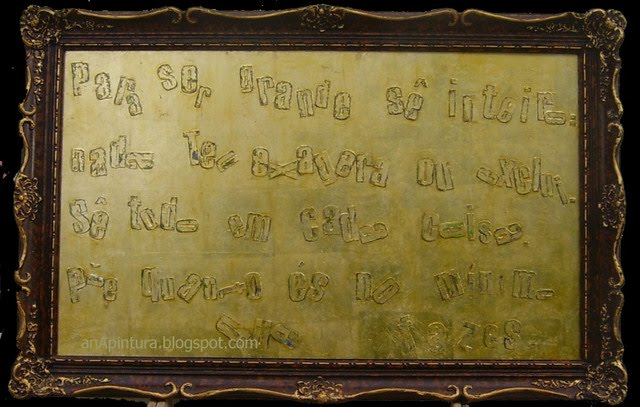 Para ser grande sê inteiro:
nada Teu exagera ou exclui.
Sê todo em cada coisa
põe quanto és no mínimo
que fazes
an4pintura.blogspot.com